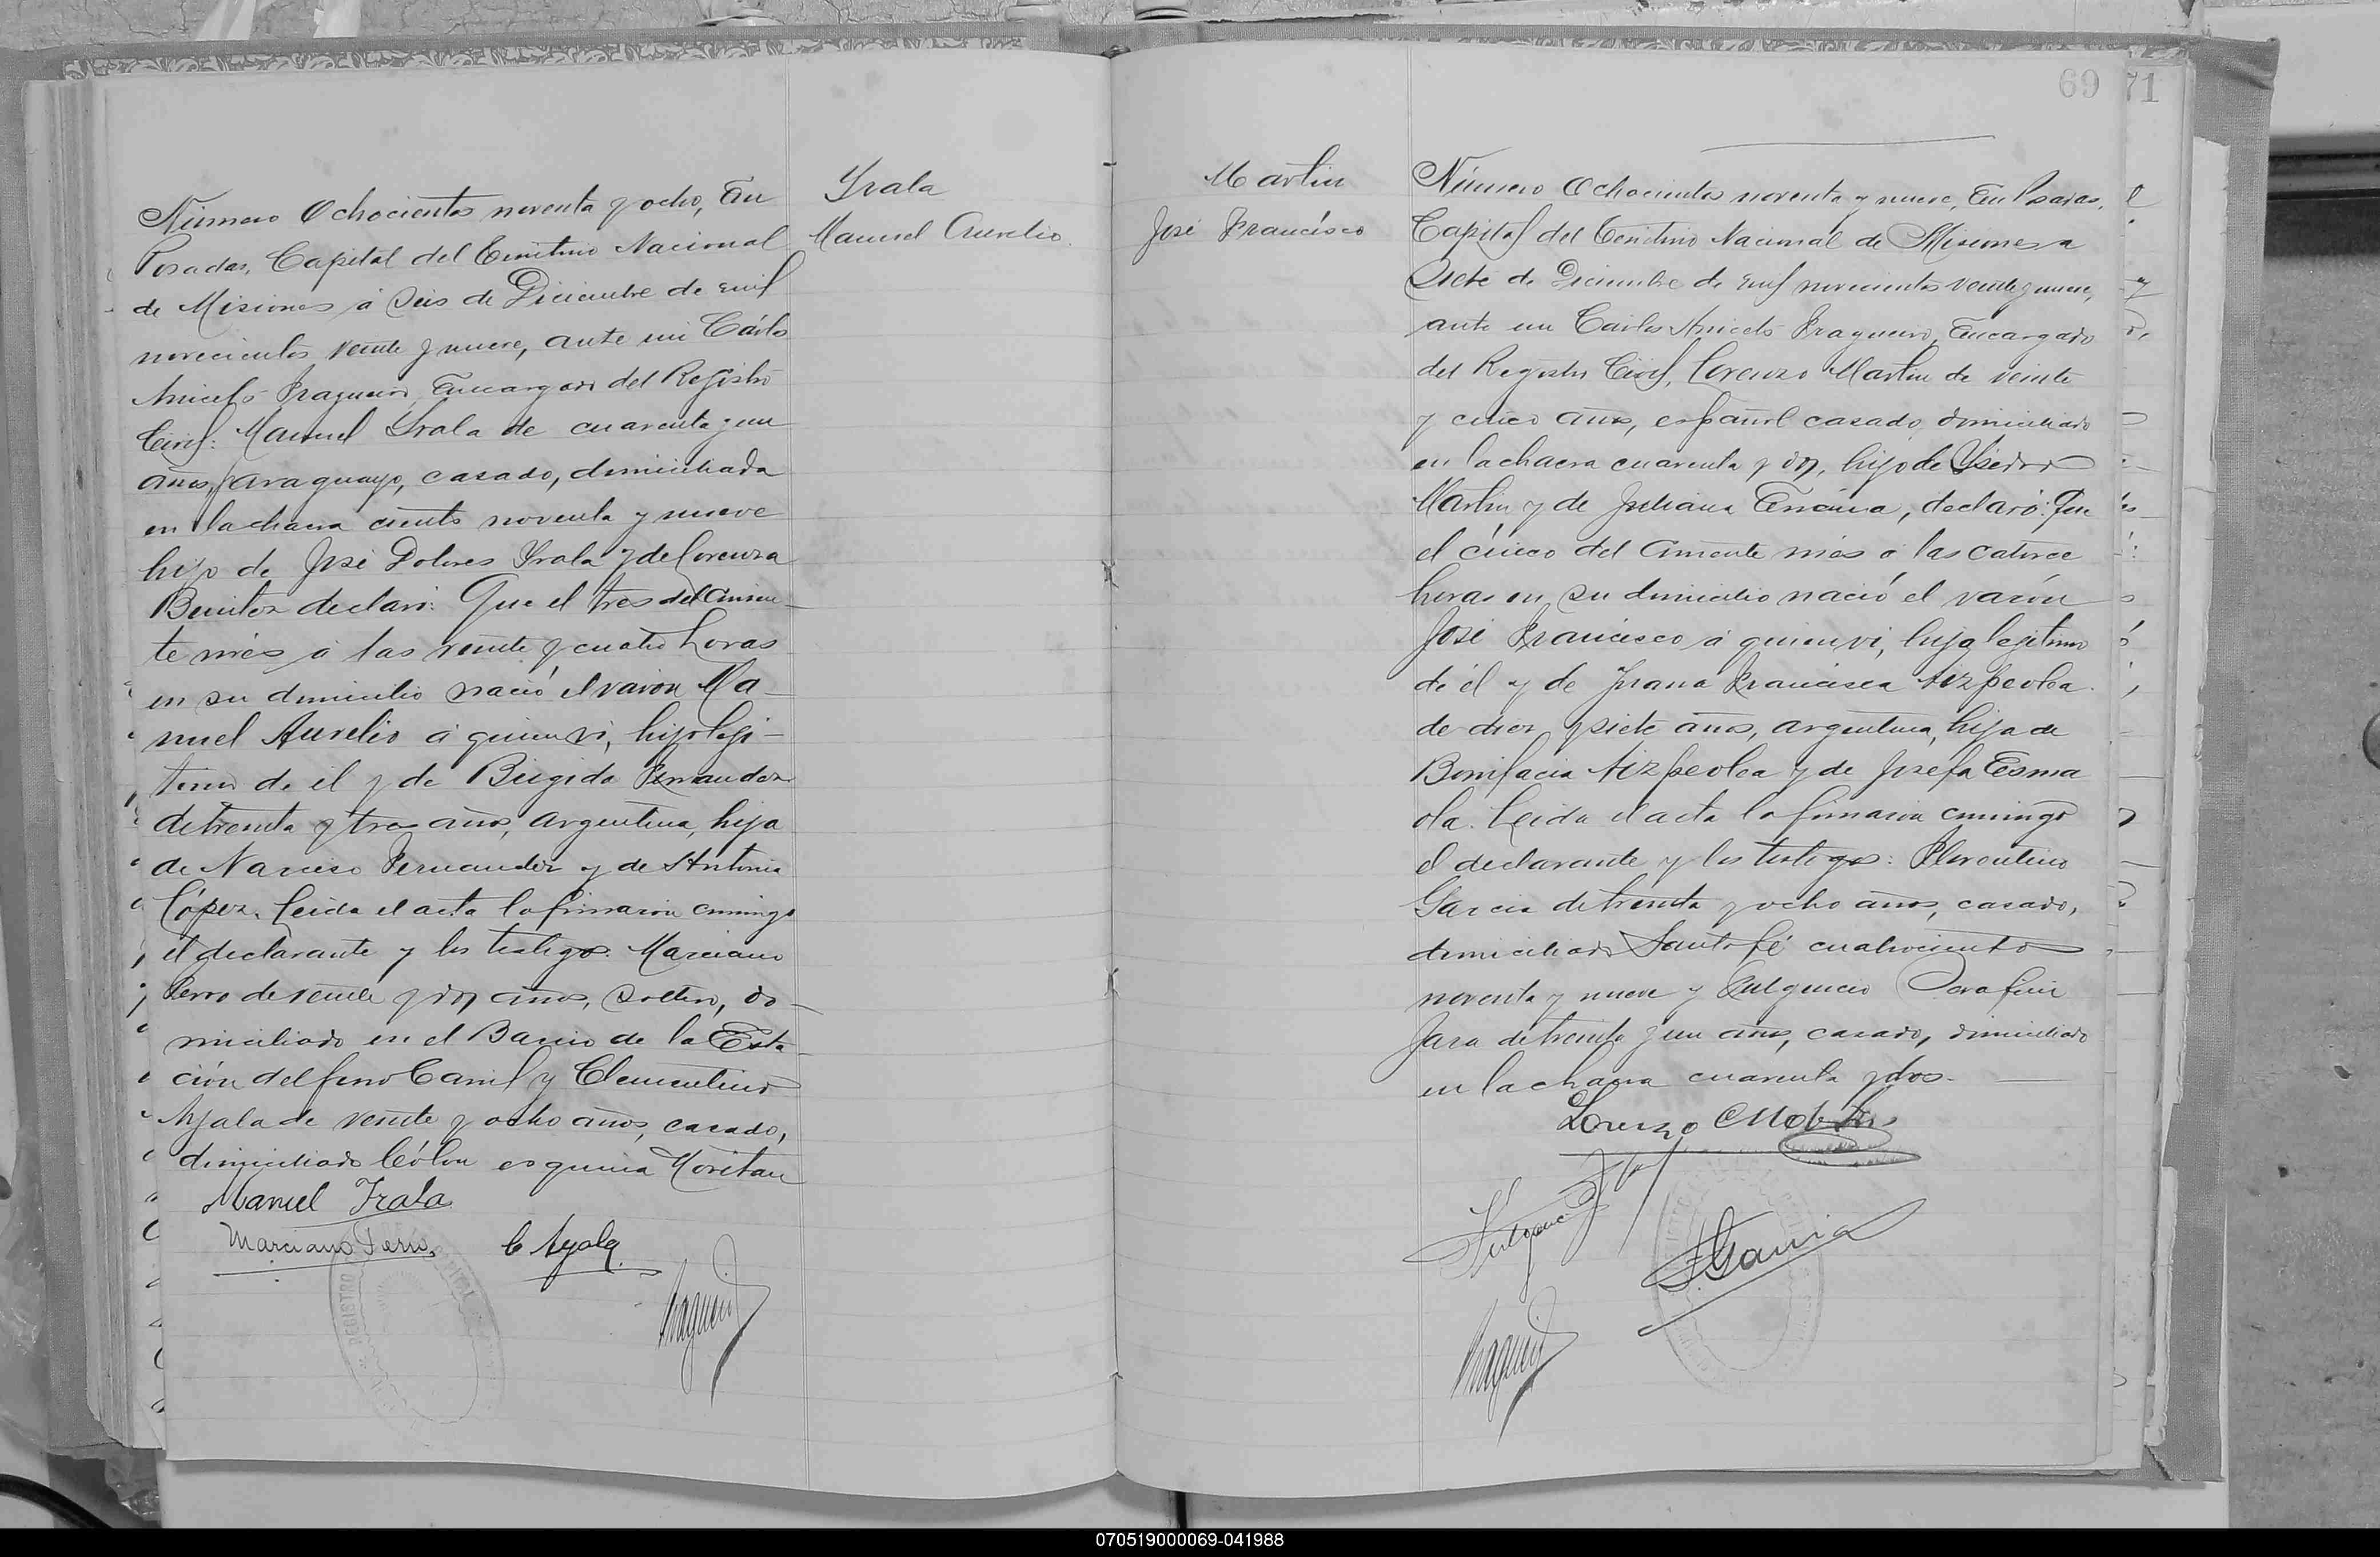 Yrala
Manuel Aurelio
Número Ochocientos noventa y ocho, En
Posadas, Capital del Territorio Nacional
de Misiones á Seis de Diciembre de mil
novecientos veinte y nueve, ante mi Cárlos
Aniceto Fragueiro, Encargado del Registro
Civil: Manuel Yrala de cuarenta y un
años, paraguayo, casado, domiciliada
en la chacra ciento noventa y nueve
hijo de José Dolores Yrala y de Lorenza
Benitez declaró: Que el tres del corrien-
te més á las veinte y cuatro horas
en su domicilio nació el varón Ma-
nuel Aurelio á quien vi, hijo legi-
timo de él y de Brigida Fernandez
de treinta y tres años, argentina, hija
de Narciso Fernandez y de Antonia
López. Leida el acta la firmaron conmigo
el declarante y los testigos: Marciano
Ferro de veinte y dos años, soltero, do-
miciliado en el Barrio de la Esta
ción del ferro Carril y Clementino
Ayala de veinte y ocho años, casado,
domiciliado Cólon esquina Moritan
Manuel Irala
Marciano Ferro C Ayala
69
71
Martin
José Francisco
Número Ochocientos noventa y nueve, En Posadas,
Capital del Territorio Nacional de Misiones a
Siete de Diciembre de mil novecientos veinte y nueve,
ante mi Carlos Aniceto Fragueiro, Encargado
del Registro Civil, Lorenzo Martin de veinte
y cinco años, español casado, domiciliado
en la chacra cuarenta y dos, hijo de Ysidro
Martin y de Juliana, declaró: Que
el cinco del corriente més á las catorce
horas en su domicilio nació el varón
José Francisco á quien vi, hijo legitimo
de él y de Juana Francisca Aizpeolea
de diez y siete años, argentina, hija de
Bonifacia Aizpeolea y de Josefa Esma
ola. Leida el acta la firmaron conmigo
el declarante y los testigos: Florentino
Garcia de treinta y ocho años, casado,
domiciliado Santa fé cuatrocientos
noventa y nueve y Fulgencio Serafin
Jara de treinta y un años, casado, domiciliado
en la chacra cuarenta y dos.
Lorenzo Martin
F. Garcia
070519000069-041988